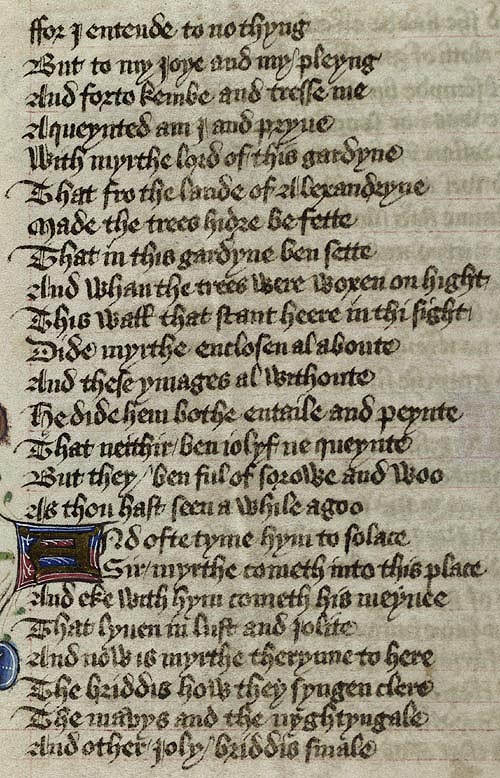 ffor I entende to no thyng
But to my Joye and my pleyng
And forto kembe and tresse me
Aqueynted am I and pryue
With myrthe lord of this gardyne
That fro the lande of Alexandryne
Made the trees hidre be fette
That in this gardyne ben sette
And whan the trees were woxen on hight
This wall that stant heere in thi sight
Dide myrthe enclosen al aboute
And these ymages al withoute
He dide hem bothe entaile and peynte
That neithir ben iolyf ne queynte
But they ben ful of sorowe and woo
As thou hast seen a while agoo
And ofte tyme hym to solace
Sir myrthe cometh into this place
And eke with hym cometh his meynee
That lyuen in lust and Jolite
And now is myrthe therynne to here
The briddis how they syngen clere
The mavys and the nyghtyngale
And other joly briddis smale